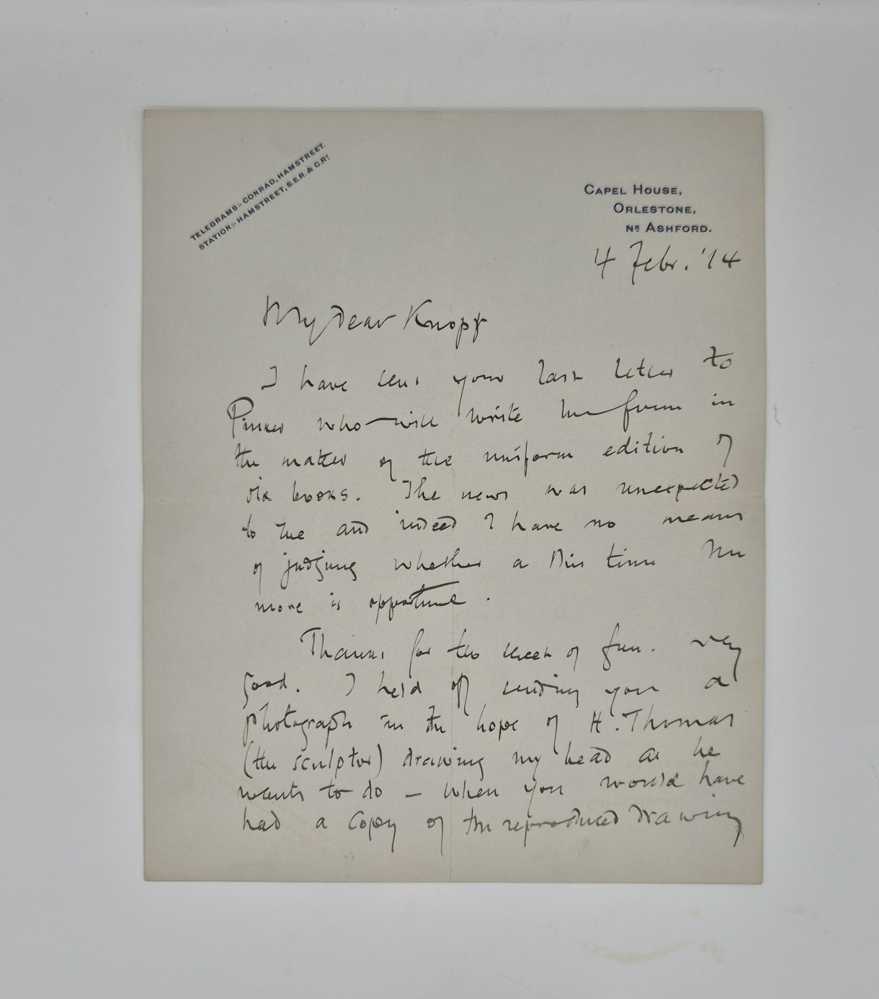 TELEGRAMS:- CONRAD, HAMSTREET.
STATION:- HAMSTREET, S.E.R. & C.RY
CAPEL HOUSE,
ORLESTONE,
NR ASHFORD.
4 Febr. '14
My dear Knopf
I have sent your last letter to
Pinker who will write in
the matter of the uniform edition of
six books. The news was unexpected
to me and indeed I have no means
of judging whether a this time the
more is opportune.
Thanks for the of fun. Very
good. I held off sending you a
photograph in the hope of H. Thomas
(the sculptor) drawing my head as he
wants to do – when you would have
had a copy of the reproduced drawing